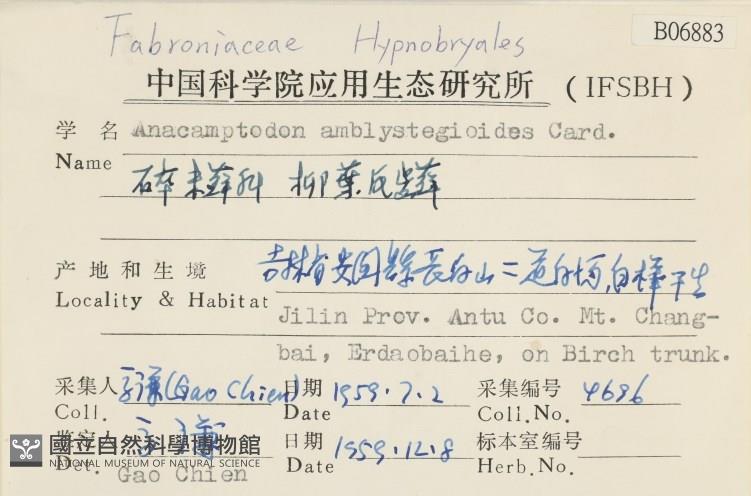 Fabroniaceae Hypnobryales
B06883
中国科学院应用生态研究所 (IFSBH)
学 名 Anacamptodon amblystegioides Card.
Name
碎米藓科 柳葉反齿藓
产地和生境 吉林省安图縣長白山二道白河,白樺干生
Locality & Habitat Jilin Prov. Antu Co. Mt. Chang-
bai, Erdaobaihe, on Birch trunk.
采集人 (Gao Chien) 日期 1959.7.2 采集编号 4696
Coll. Date Coll.No.
鉴定人 日期 1959.12.8 标本室编号
Det. Gao Chien Date Herb.No.
國立自然科學博物館
NATIONAL MUSEUM OF NATURAL SCIENCE